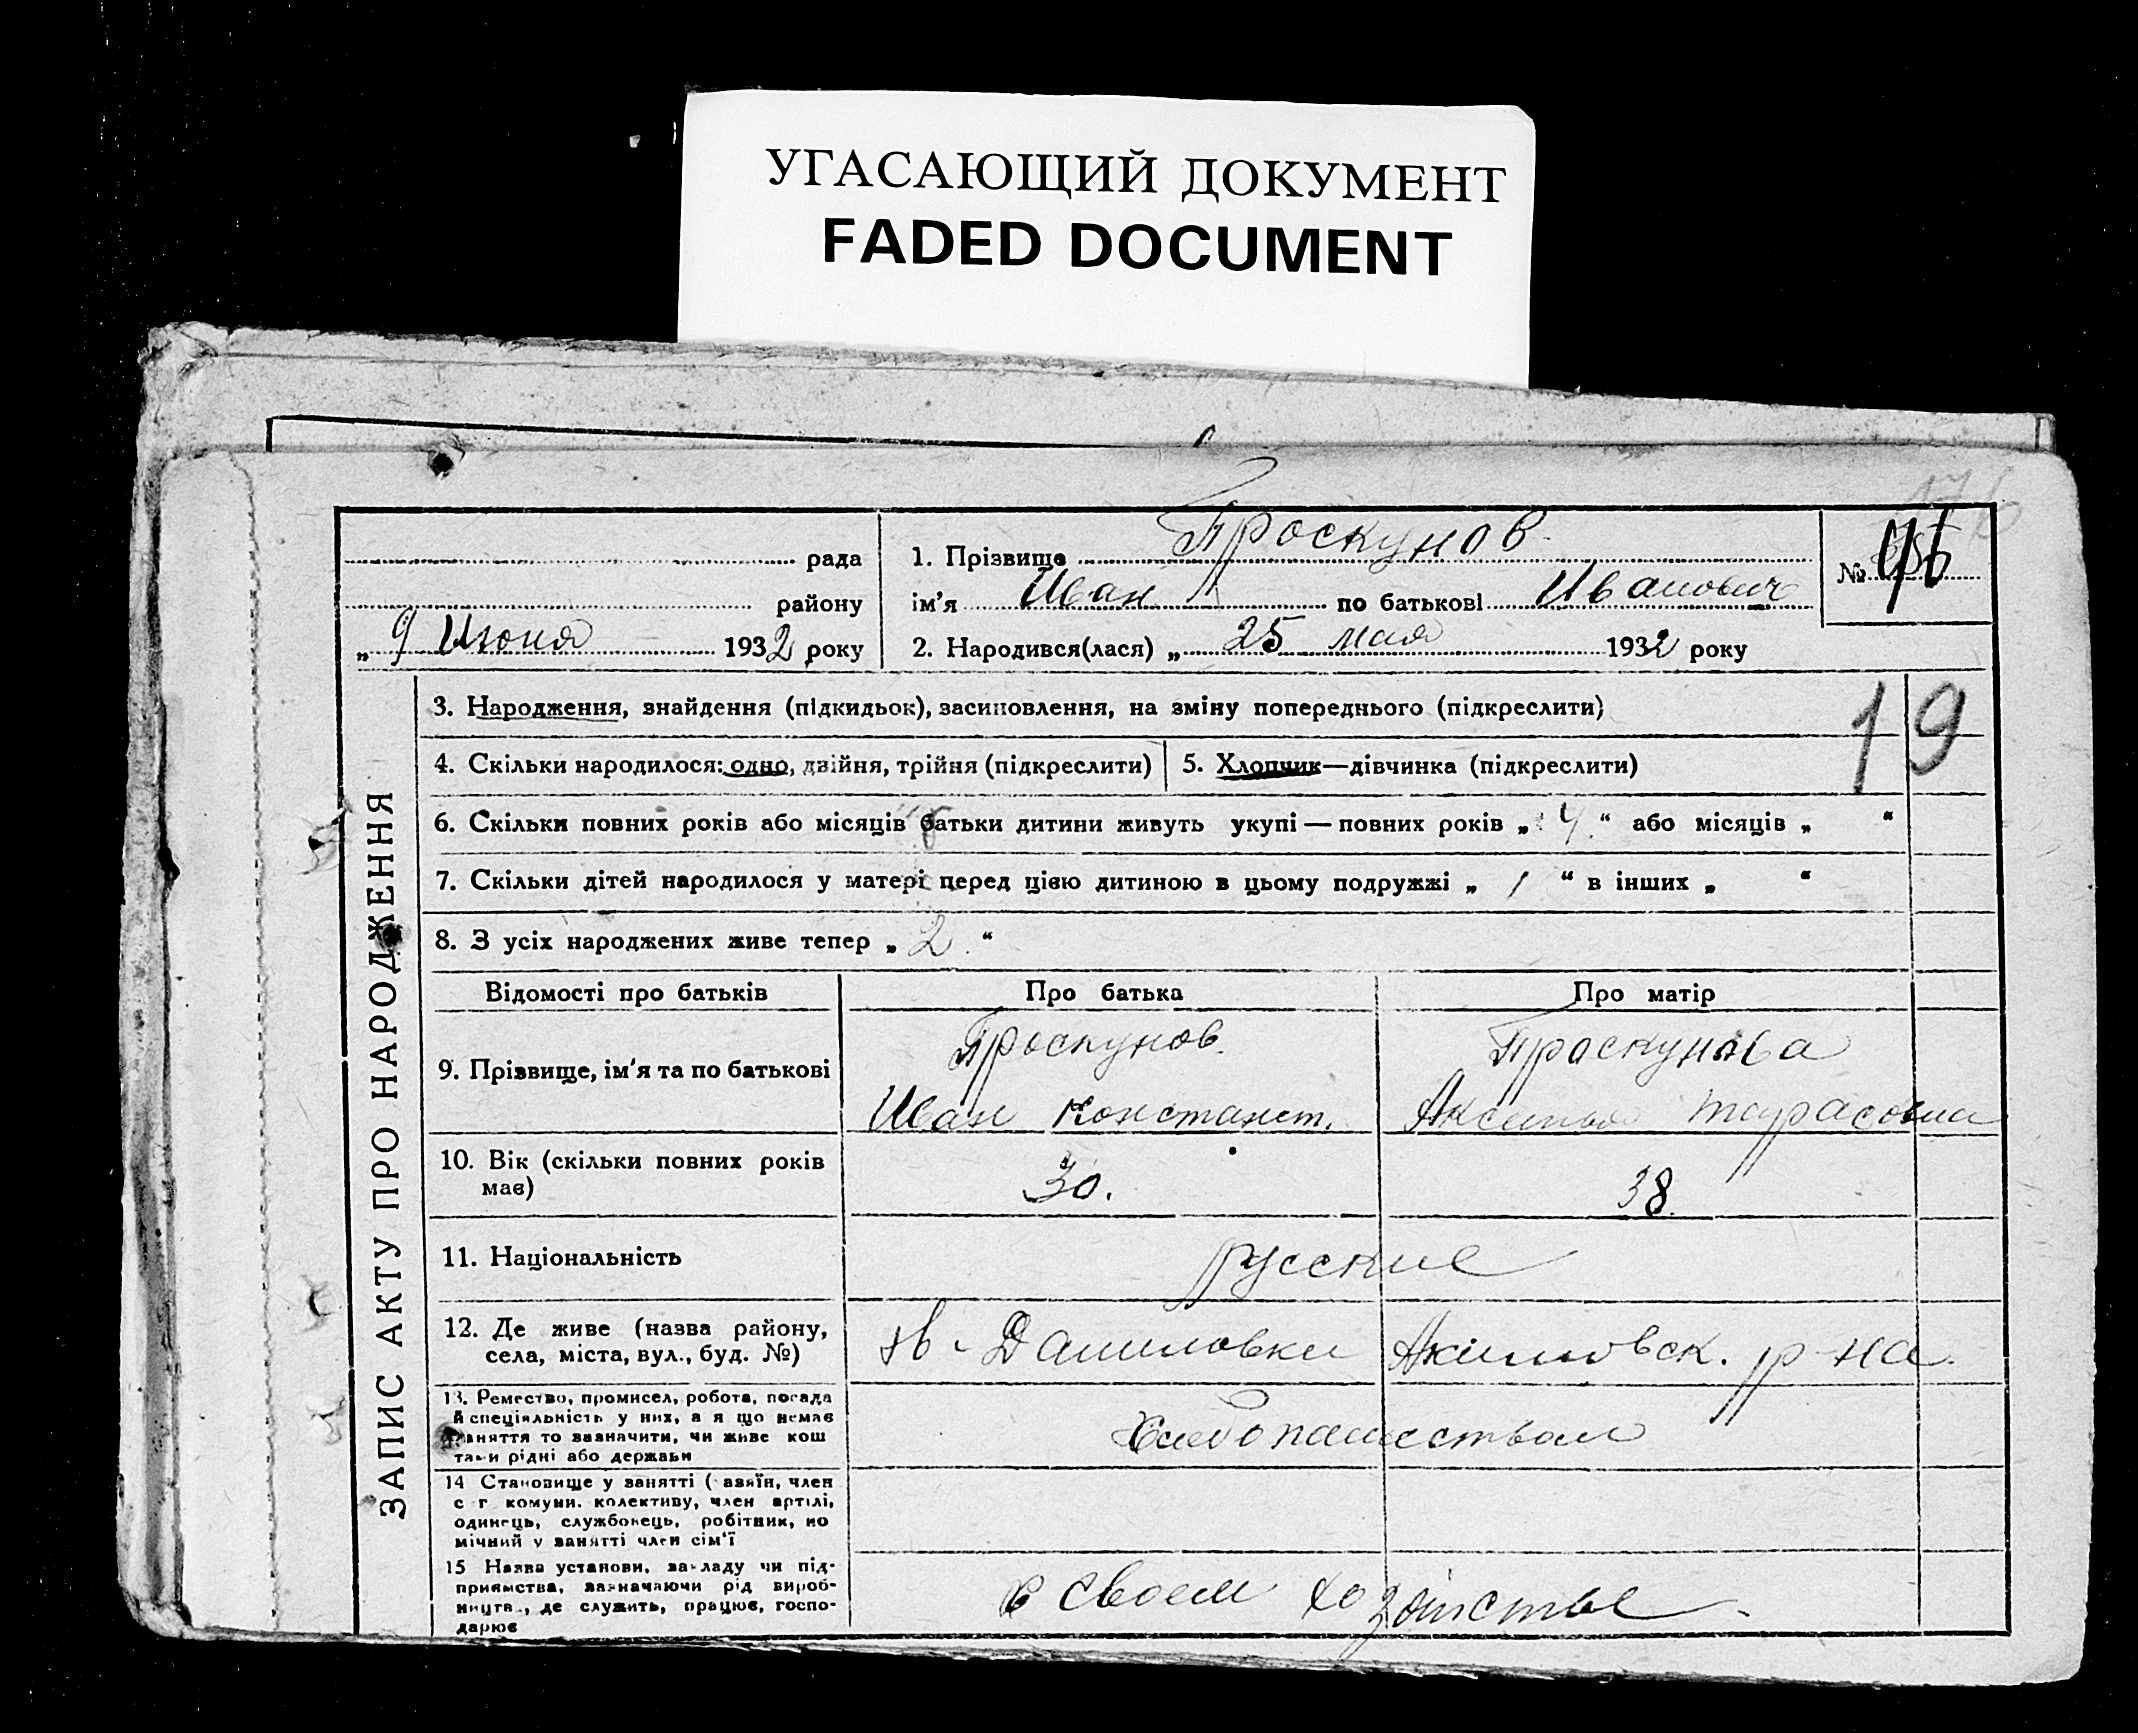 УГАСАЮЩИЙ ДОКУМЕНТ
FADED DOCUMENT
рада
району
„ 9 Июня 1932 року
1. Прізвище Проскунов
ім'я Иван по батькові Иванович
2. Народився(лася) „ 25 мая 1932 року
№
ЗАПИС АКТУ ПРО НАРОДЖЕННЯ
3. Народження, знайдення (підкидьок), засиновлення, на зміну попереднього (підкреслити)
19
4. Скільки народилося: одно, двійня, трійня (підкреслити)
5. Хлопчик—дівчинка (підкреслити)
6. Скільки повних років або місяців батьки дитини живуть укупі — повних років „ 4 “ або місяців „ “
7. Скільки дітей народилося у матері перед цією дитиною в цьому подружжі „ 1 “ в інших „ “
8. З усіх народжених живе тепер „ 2 “
Відомості про батьків
Про батька
Про матір
9. Прізвище, ім'я та по батькові
Проскунов
Иван Констант.
Проскунова
Аксинья Тарасовна
10. Вік (скільки повних років
має)
30.
38.
11. Національність
русские
12. Де живе (назва району,
села, міста, вул., буд. №)
Н - Даниловки Акимовск. р-на.
13. Ремество, промисел, робота, посада
й спеціяльність у них, а я що немає
заняття то зазначити, чи живе кош
тами рідні або держави
Хлебопашеством
14 Становище у занятті (хазяїн, член
с г комуни, колективу, член артілі,
одинець, службовець, робітник, по
мічний у занятті член сім'ї
15 Назва установи, закладу чи під-
приємства, зазначаючи рід вироб-
ництв., де служить, працює, госпо-
дарює
в своем хозяйстве